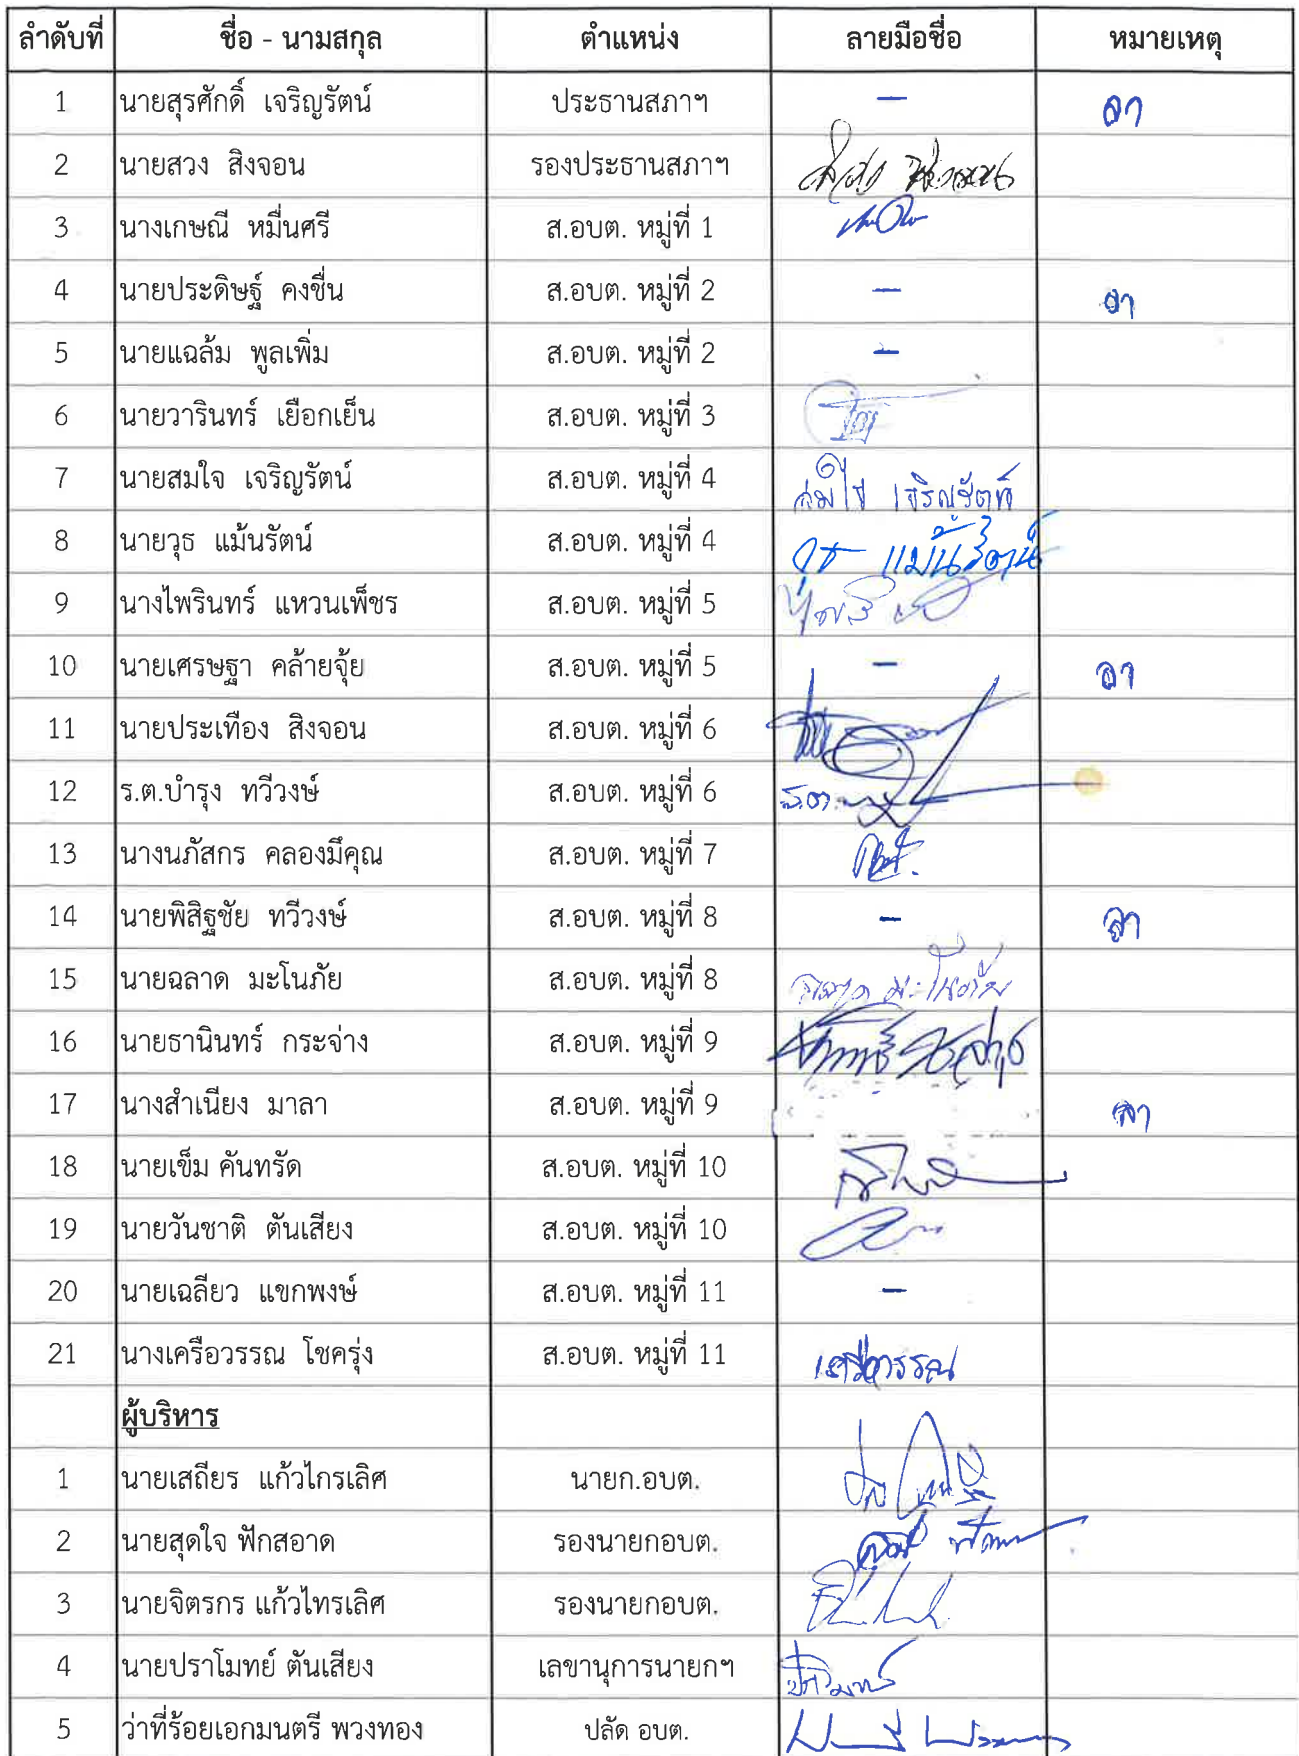 ลำดับที่ ชื่อ - นามสกุล ตำแหน่ง ลายมือชื่อ หมายเหตุ
1 นายสุรศักดิ์ เจริญรัตน์ ประธานสภาฯ - ลา
2 นายสวง สิงจอน รองประธานสภาฯ
3 นางเกษณี หมื่นศรี ส.อบต. หมู่ที่ 1
4 นายประดิษฐ์ คงชื่น ส.อบต. หมู่ที่ 2 - ลา
5 นายแฉล้ม พูลเพิ่ม ส.อบต. หมู่ที่ 2 -
6 นายวารินทร์ เยือกเย็น ส.อบต. หมู่ที่ 3
7 นายสมใจ เจริญรัตน์ ส.อบต. หมู่ที่ 4 สมใจ เจริญรัตน์
8 นายวุธ แม้นรัตน์ ส.อบต. หมู่ที่ 4 วุธ แม้นรัตน์
9 นางไพรินทร์ แหวนเพ็ชร ส.อบต. หมู่ที่ 5
10 นายเศรษฐา คล้ายจุ้ย ส.อบต. หมู่ที่ 5 - ลา
11 นายประเทือง สิงจอน ส.อบต. หมู่ที่ 6
12 ร.ต.บำรุง ทวีวงษ์ ส.อบต. หมู่ที่ 6 ร.ต.
13 นางนภัสกร คลองมีคุณ ส.อบต. หมู่ที่ 7
14 นายพิสิฐชัย ทวีวงษ์ ส.อบต. หมู่ที่ 8 - ลา
15 นายฉลาด มะโนภัย ส.อบต. หมู่ที่ 8 ฉลาด มะโนภัย
16 นายธานินทร์ กระจ่าง ส.อบต. หมู่ที่ 9
17 นางสำเนียง มาลา ส.อบต. หมู่ที่ 9 ลา
18 นายเข็ม คันทรัด ส.อบต. หมู่ที่ 10
19 นายวันชาติ ตันเสียง ส.อบต. หมู่ที่ 10
20 นายเฉลียว แขกพงษ์ ส.อบต. หมู่ที่ 11 -
21 นางเครือวรรณ โชครุ่ง ส.อบต. หมู่ที่ 11 เครือวรรณ
ผู้บริหาร
1 นายเสถียร แก้วไกรเลิศ นายก.อบต.
2 นายสุดใจ ฟักสอาด รองนายกอบต.
3 นายจิตรกร แก้วไทรเลิศ รองนายกอบต.
4 นายปราโมทย์ ตันเสียง เลขานุการนายกฯ ปราโมทย์
5 ว่าที่ร้อยเอกมนตรี พวงทอง ปลัด อบต.